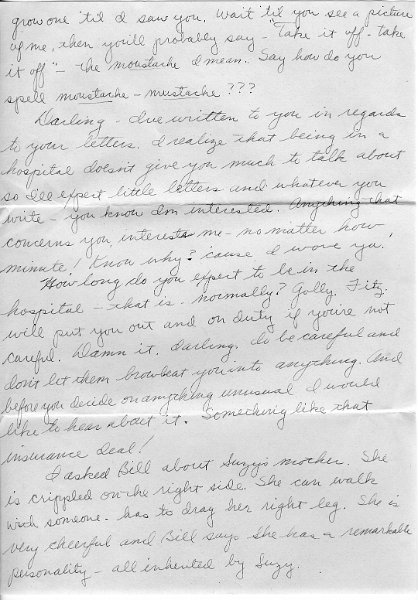 grow one 'til I saw you. Wait 'til you see a picture
of me, then you'll probably say - "Take it off - take
it off" - the moustache I mean. Say how do you
spell moustache - mustache ???
Darling - I've written to you in regards
to your letters. I realize that being in a
hospital doesn't give you much to talk about
so I'll expect little letters and whatever you
write - you know I'm interested. Anything that
concerns you interests me - no matter how
minute! Know why? 'cause I wove ya!
How long do you expect to be in the
hospital - that is - normally? Golly, Fitz.
will put you out and on duty if you're not
careful. Damn it, darling, do be careful and
don't let them browbeat you into anything. And
before you decide on anything unusual I would
like to hear about it. Something like that
insurance deal!
I asked Bill about Suzy's mother. She
is crippled on the right side. She can walk
with someone - has to drag her right leg. She is
very cheerful and Bill says she has a remarkable
personality - all inherited by Suzy.